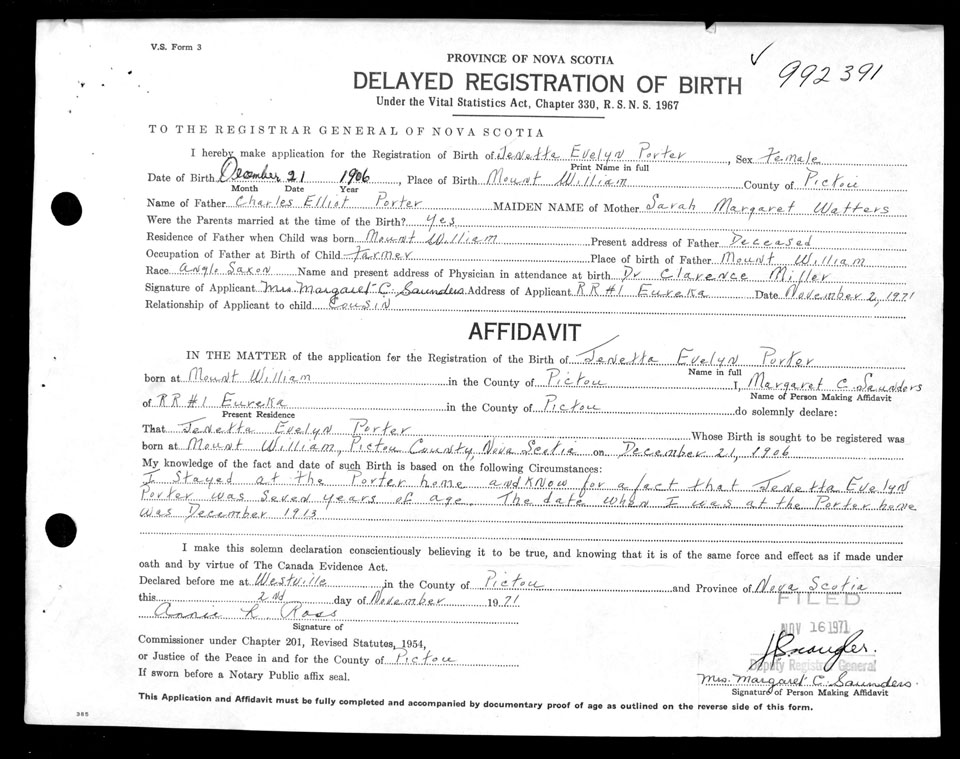 V.S. Form 3
992391
PROVINCE OF NOVA SCOTIA
DELAYED REGISTRATION OF BIRTH
Under the Vital Statistics Act, Chapter 330, R.S.N.S. 1967
TO THE REGISTRAR GENERAL OF NOVA SCOTIA
I hereby make application for the Registration of Birth of Jenetta Evelyn Porter, Sex Female
Print Name in full
Date of Birth December 21 1906, Place of Birth Mount William County of Pictou
Month Date Year
Name of Father Charles Elliot Porter MAIDEN NAME of Mother Sarah Margaret Watters
Were the Parents married at the time of the Birth? Yes
Residence of Father when Child was born Mount William Present address of Father Deceased
Occupation of Father at Birth of Child Farmer Place of birth of Father Mount William
Race Anglo Saxon Name and present address of Physician in attendance at birth Dr Clarence Miller
Signature of Applicant Mrs. Margaret C. Saunders Address of Applicant RR#1 Eureka Date November 2, 1971
Relationship of Applicant to child Cousin
AFFIDAVIT
IN THE MATTER of the application for the Registration of the Birth of Jenetta Evelyn Porter
Name in full
born at Mount William in the County of Pictou I, Margaret C Saunders
Name of Person Making Affidavit
of RR#1 Eureka in the County of Pictou do solemnly declare:
Present Residence
That Jenetta Evelyn Porter Whose Birth is sought to be registered was
born at Mount William, Pictou County, Nova Scotia on December 21, 1906
My knowledge of the fact and date of such Birth is based on the following Circumstances:
I stayed at the Porter home and know for a fact that Jenetta Evelyn
Porter was seven years of age. The date when I was at the Porter home
was December 1913
I make this solemn declaration conscientiously believing it to be true, and knowing that it is of the same force and effect as if made under
oath and by virtue of The Canada Evidence Act.
Declared before me at Westville in the County of Pictou and Province of Nova Scotia
this 2nd day of November 1971
FILED
Annie L. Ross
NOV 16 1971
Signature of
Commissioner under Chapter 201, Revised Statutes, 1954,
or Justice of the Peace in and for the County of Pictou
Deputy Registrar General
If sworn before a Notary Public affix seal.
Mrs. Margaret C. Saunders.
Signature of Person Making Affidavit
This Application and Affidavit must be fully completed and accompanied by documentary proof of age as outlined on the reverse side of this form.
385